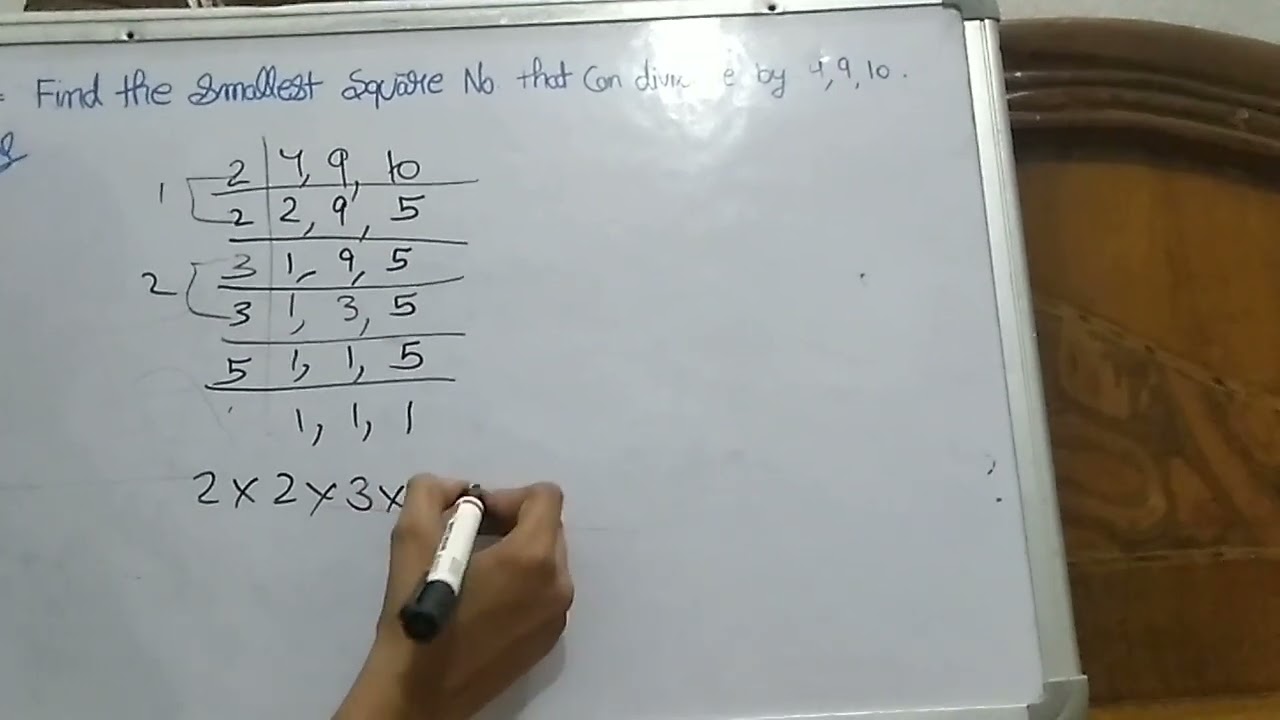 Find the Smallest Square No that Can by 4, 9, 10.
2 4, 9, 10
1
2 2, 9, 5
3 1, 9, 5
2
3 1, 3, 5
5 1, 1, 5
1, 1, 1
2 x 2 x 3 x